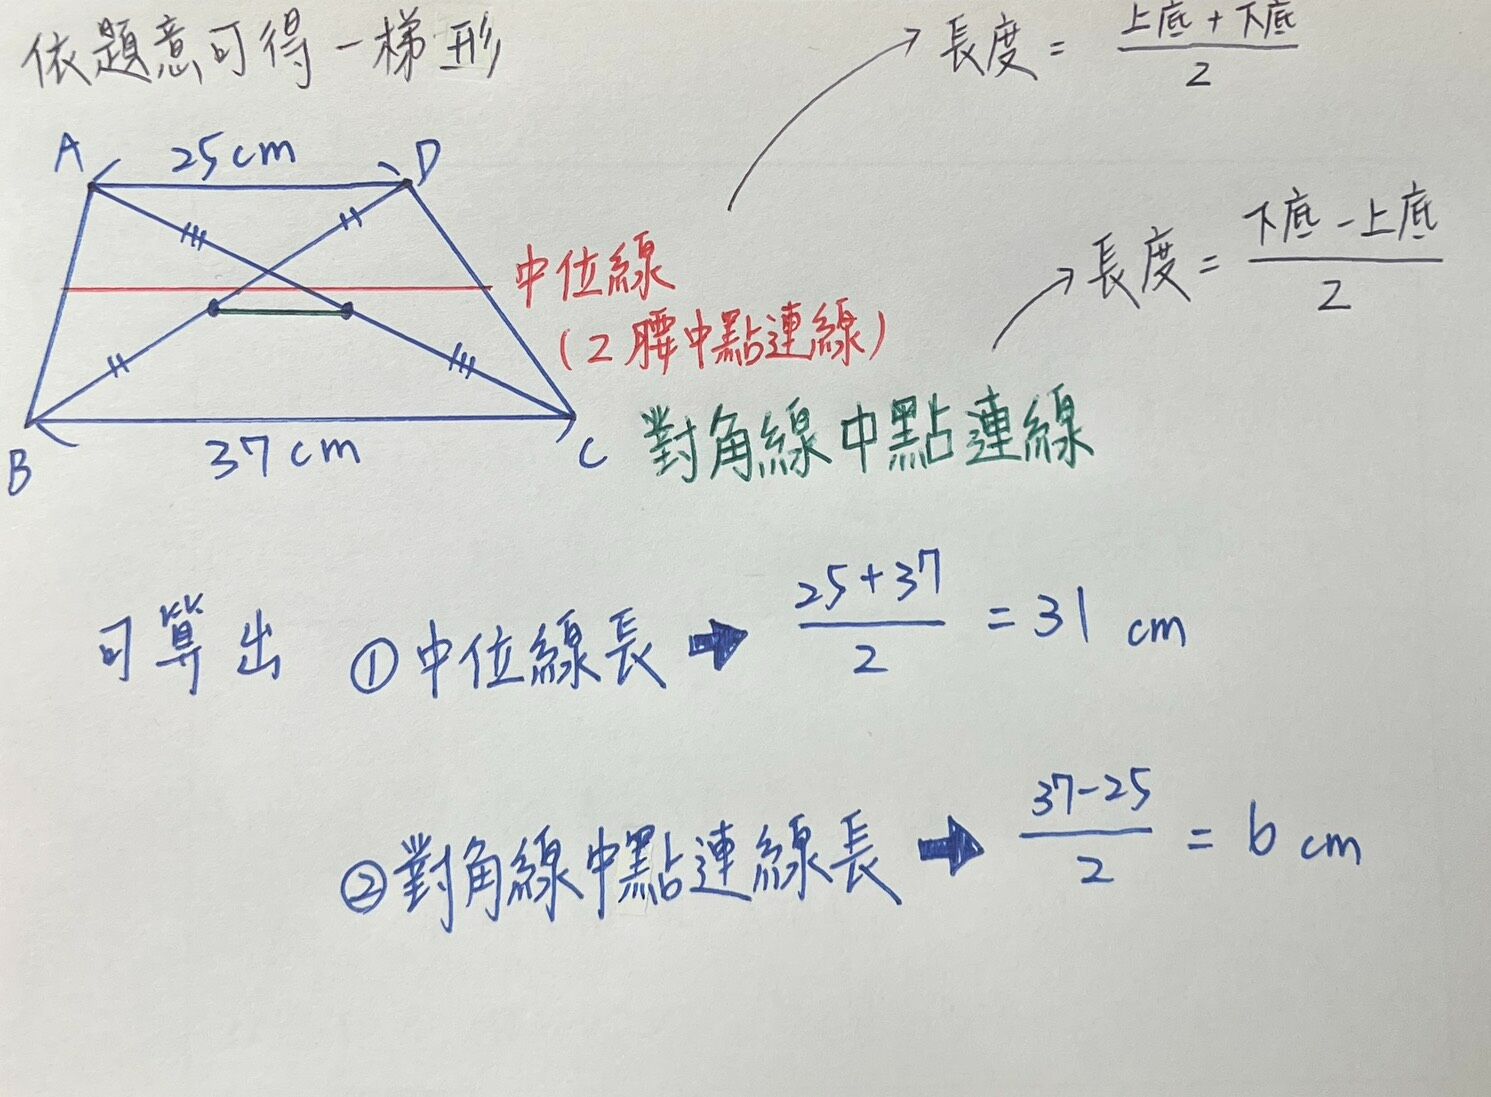 依題意可得一梯形
長度 = 上底 + 下底 / 2
A 25cm D
長度 = 下底 - 上底 / 2
中位線
(2腰中點連線)
B 37cm C
對角線中點連線
可算出 ①中位線長 ➡ 25+37 / 2 = 31 cm
②對角線中點連線長 ➡ 37-25 / 2 = 6 cm